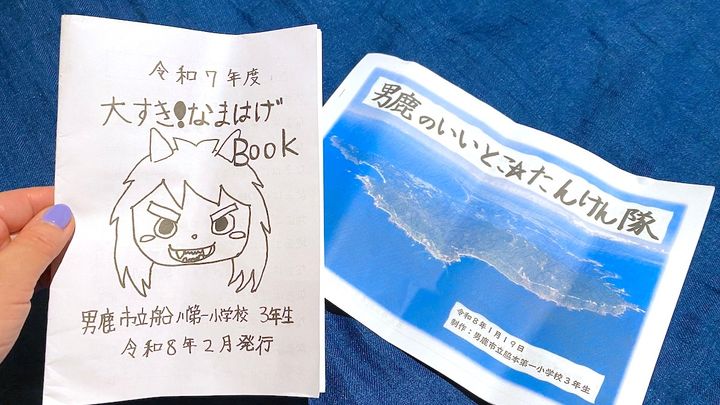 令和7年度
大すき!なまはげ
Book
男鹿市立船川第一小学校 3年生
令和8年2月発行
男鹿のいいとこ☆たんけん隊
令和8年1月19日
制作:男鹿市立脇本第一小学校3年生